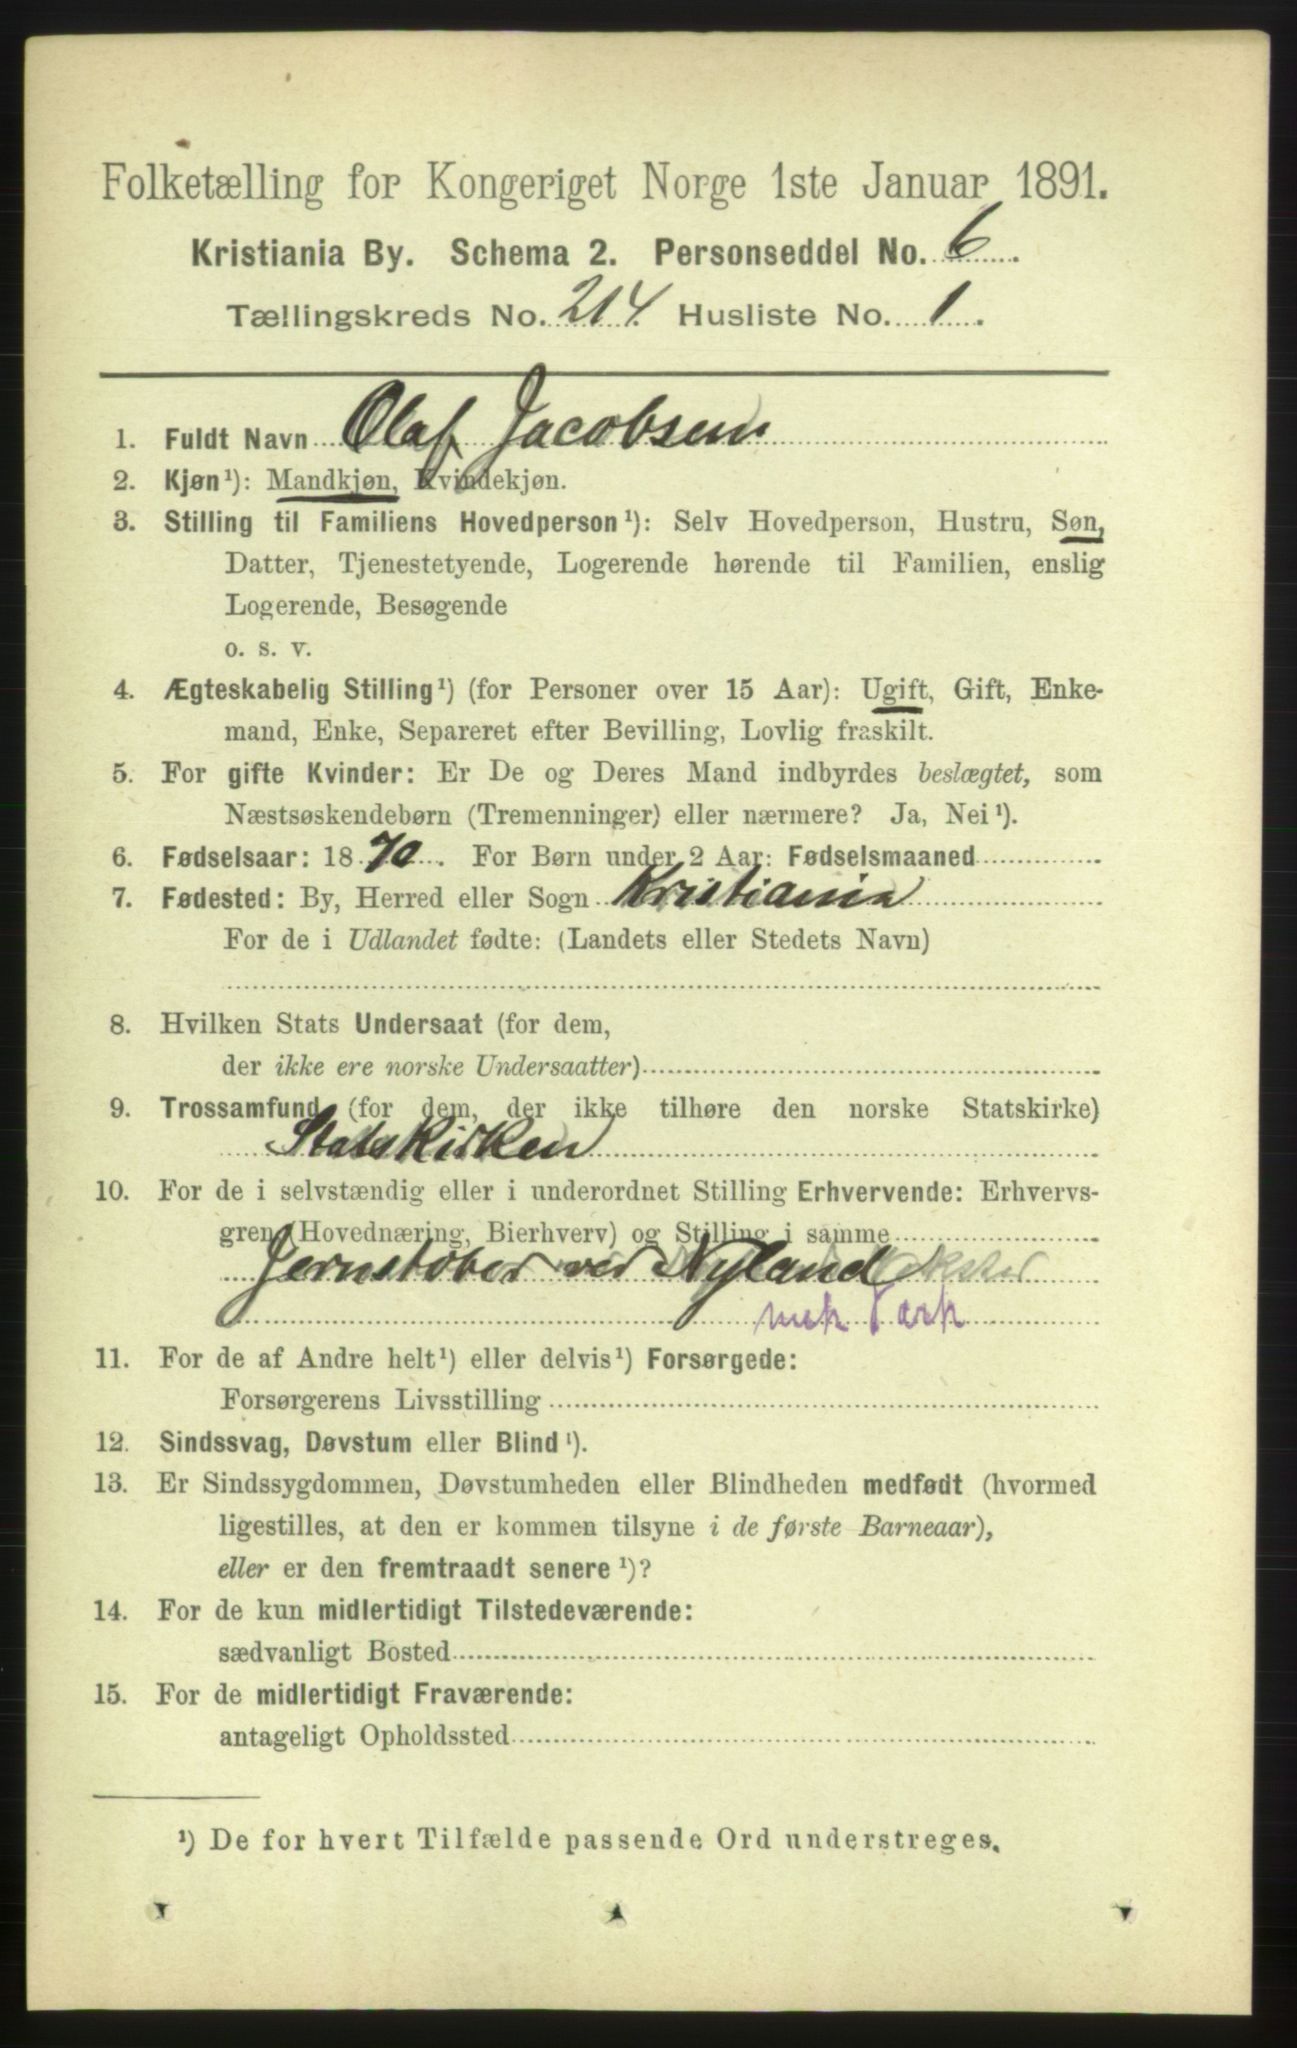 Folketælling for Kongeriget Norge 1ste Januar 1891.
Kristiania By. Schema 2. Personseddel No. 6.
Tællingskreds No. 214. Husliste No. 1.
1. Fuldt Navn Olaf Jacobsen
2. Kjøn¹): Mandkjøn, Kvindekjøn.
3. Stilling til Familiens Hovedperson¹): Selv Hovedperson, Hustru, Søn,
Datter, Tjenestetyende, Logerende hørende til Familien, enslig
Logerende, Besøgende
o. s. v.
4. Ægteskabelig Stilling¹) (for Personer over 15 Aar): Ugift, Gift, Enke-
mand, Enke, Separeret efter Bevilling, Lovlig fraskilt.
5. For gifte Kvinder: Er De og Deres Mand indbyrdes beslægtet, som
Næstsøskendebørn (Tremenninger) eller nærmere? Ja, Nei¹).
6. Fødselsaar: 1870. For Børn under 2 Aar: Fødselsmaaned
7. Fødested: By, Herred eller Sogn Kristiania
For de i Udlandet fødte: (Landets eller Stedets Navn)
8. Hvilken Stats Undersaat (for dem,
der ikke ere norske Undersaatter)
9. Trossamfund (for dem, der ikke tilhøre den norske Statskirke)
Statskirken
10. For de i selvstændig eller i underordnet Stilling Erhvervende: Erhvervs-
gren (Hovednæring, Bierhverv) og Stilling i samme
Jernstøber ved Nyland
mek Værk
11. For de af Andre helt¹) eller delvis¹) Forsørgede:
Forsørgerens Livsstilling
12. Sindssvag, Døvstum eller Blind¹).
13. Er Sindssygdommen, Døvstumheden eller Blindheden medfødt (hvormed
ligestilles, at den er kommen tilsyne i de første Barneaar),
eller er den fremtraadt senere¹)?
14. For de kun midlertidigt Tilstedeværende:
sædvanligt Bosted
15. For de midlertidigt Fraværende:
antageligt Opholdssted
¹) De for hvert Tilfælde passende Ord understreges.